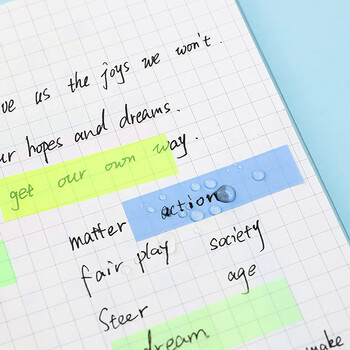 ve us the joys we won't.
ur hopes and dreams.
get our own way.
matter action
fair play society
Steer age
dream
make